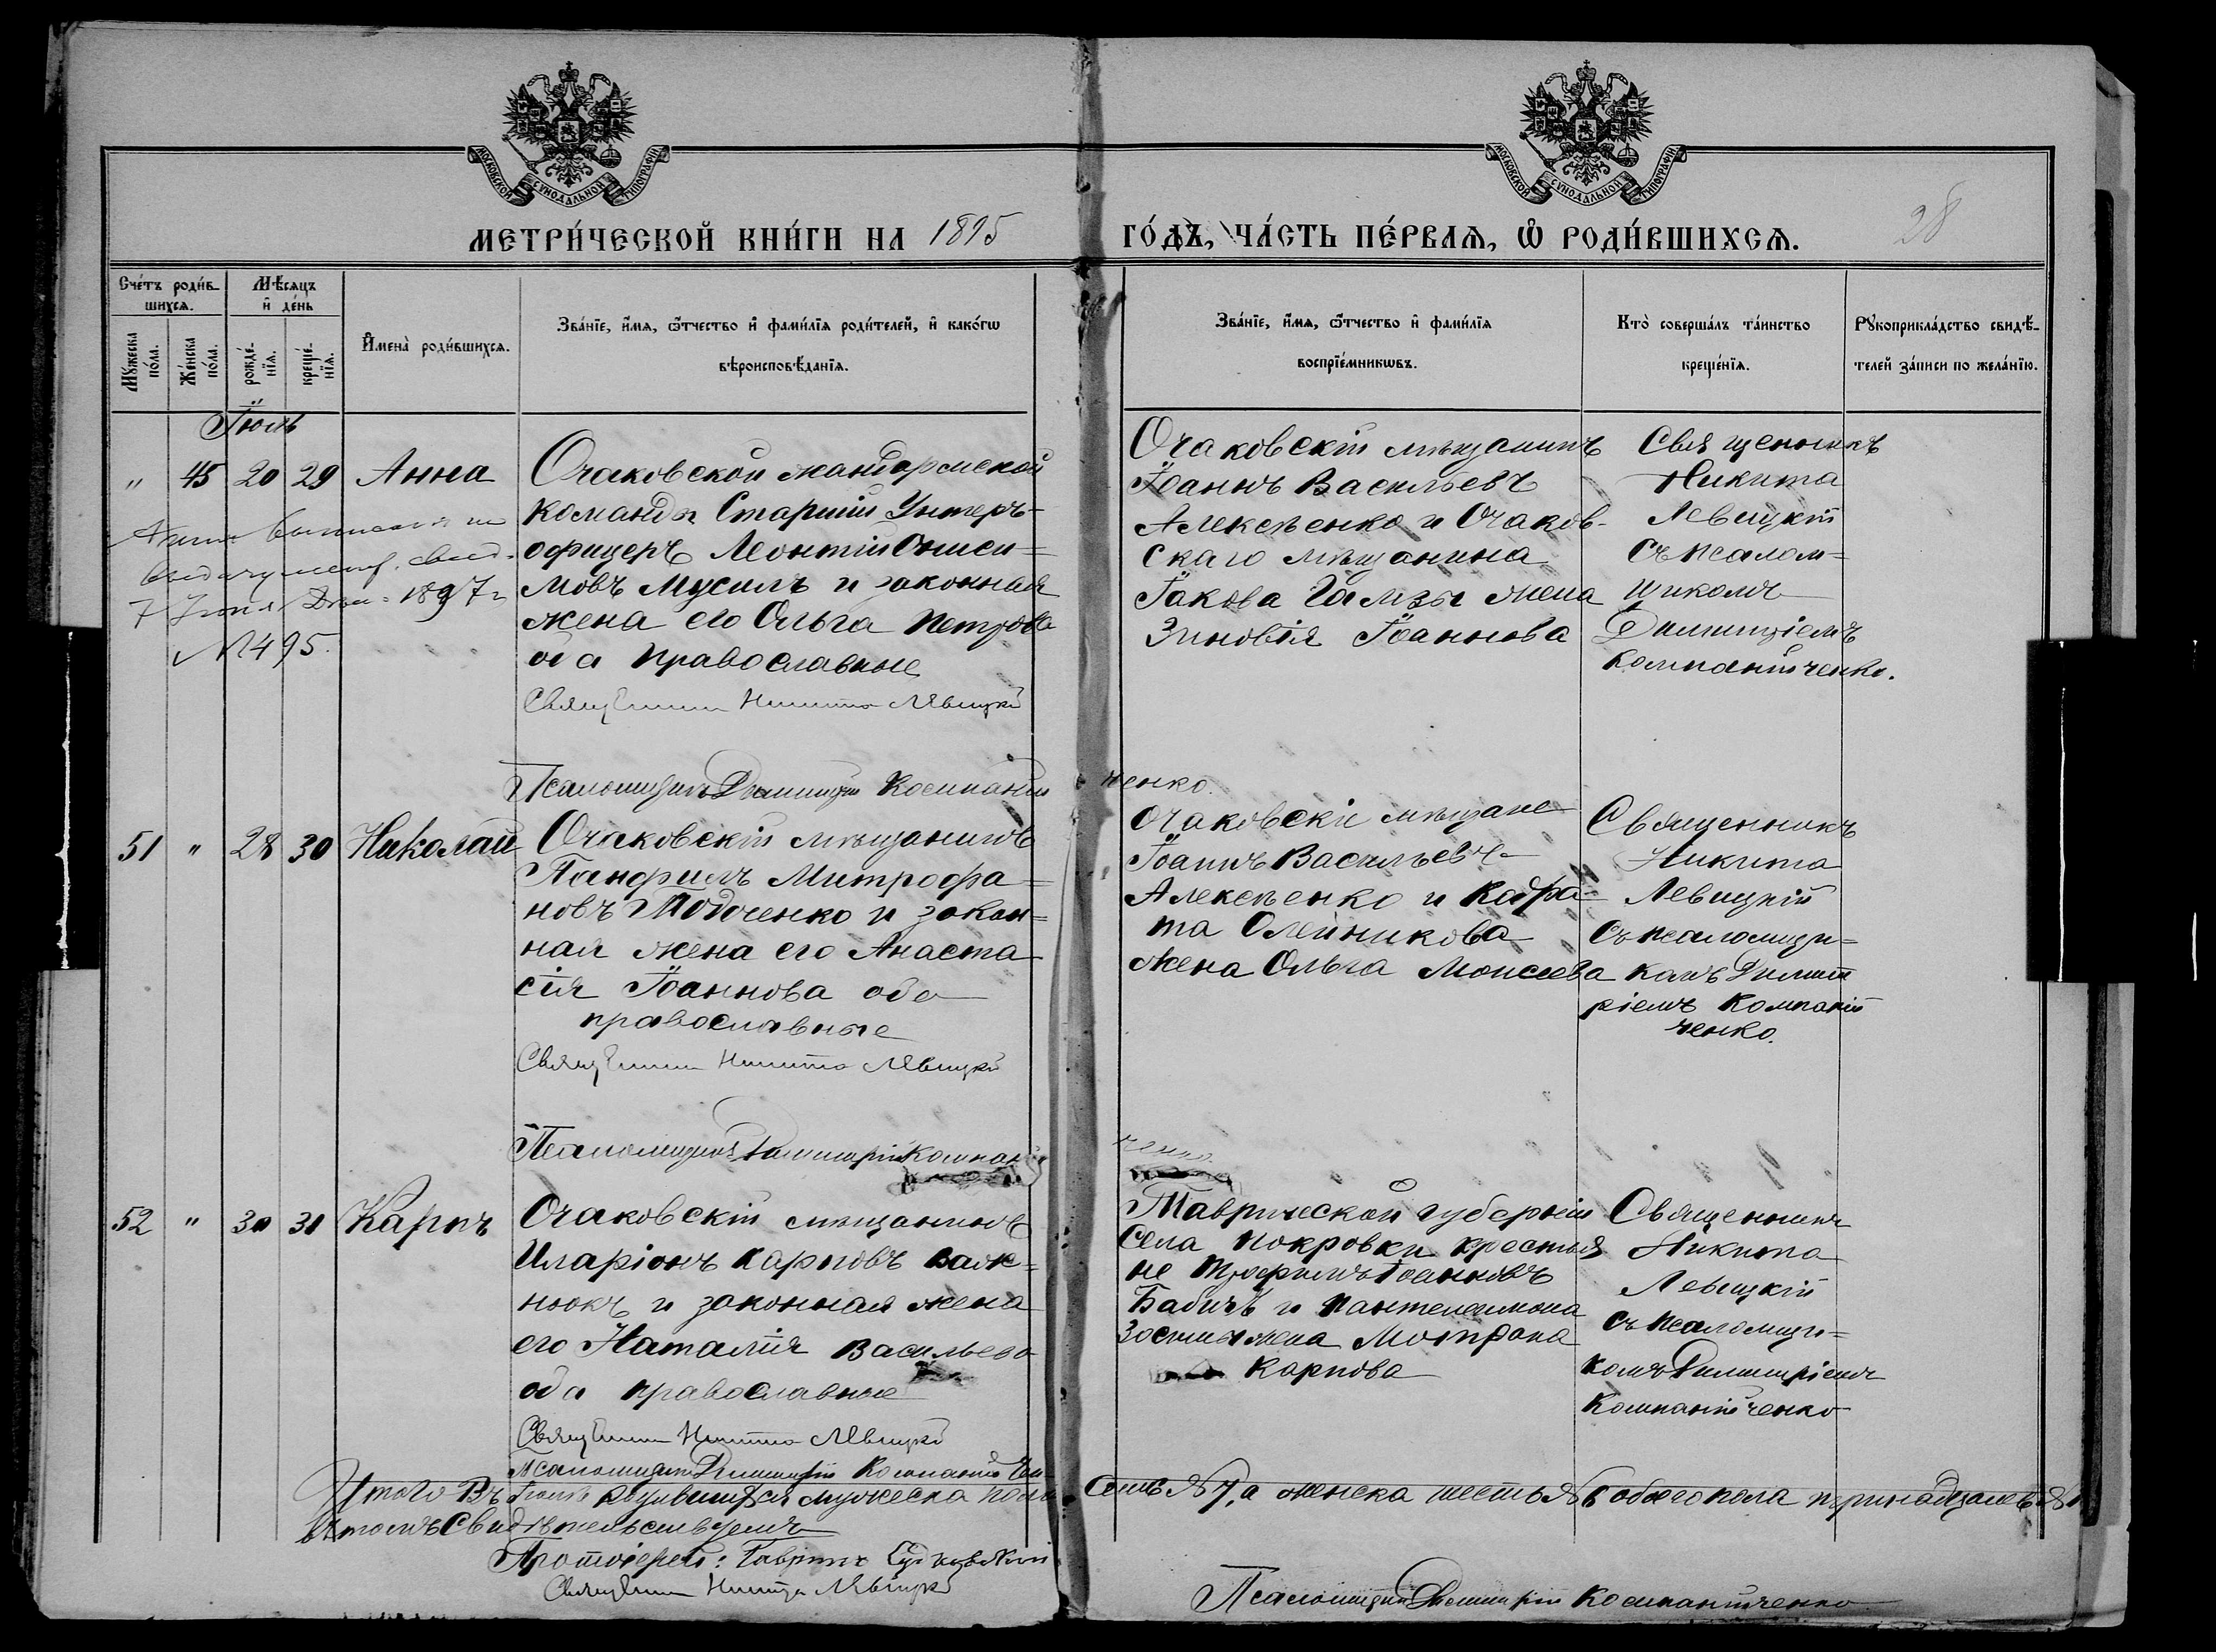 МОСКОВСКОЙ СѴНОДАЛЬНОЙ ТИПОГРАФІИ
МОСКОВСКОЙ СѴНОДАЛЬНОЙ ТИПОГРАФІИ
МЕТРИ́ЧЕСКОЙ КНИ́ГИ НА 1895
ГО́ДЪ, ЧА́СТЬ ПЕ́РВАѦ, Ѡ҆ РОДИ́ВШИХСѦ.
28
Сче́тъ роди́в-
шихсѧ.
Мѣ́сѧцъ
и҆ де́нь
Мꙋ́жеска
по́ла.
Же́нска
по́ла.
рожде́-
нїѧ.
креще́-
нїѧ.
И҆мена̀ роди́вшихсѧ.
Зва́нїе, и҆́мѧ, ѻ҆́тчество и҆ фами́лїѧ роди́телей, и҆ како́гѡ
вѣроисповѣ́данїѧ.
Зва́нїе, и҆́мѧ, ѻ҆́тчество и҆ фами́лїѧ
воспрїе́мникѡвъ.
Кто̀ соверша́лъ та́инство
креще́нїѧ.
Рꙋкоприкла́дство свидѣ́-
телей за́писи по жела́нїю.
Іюль
" 45 20 29 Анна
Очаковской жандармской
команды Старшій Унтеръ-
офицеръ Леонтій Ониси=
мовъ Мусилъ и законная
жена его Ольга Петрова
оба православные
Священникъ Никита Лѣвицкій
Псаломщикъ Димитрій Компаній
ченко.
7 Іюня 1897 г
№ 495.
Очаковскій мѣщанинъ
Іоаннъ Васильевъ
Алексѣенко и Очаков-
скаго мѣщанина
Іакова Гамзы жена
Зиновія Іоаннова
Священникъ
Никита
Левицкій
съ псалом=
щикомъ
Димитріемъ
Компанійченко.
51 " 28 30 Николай
Очаковскій мѣщанинъ
Панфилъ Митрофа=
новъ Тодоченко и закон=
ная жена его Анаста
сія Іоаннова оба
православные
Священникъ Никита Лѣвицкій
Псаломщикъ Димитрій Компаній
ченко.
Очаковскіе мѣщане
Іоаннъ Васильевъ
Алексѣенко и Кодра-
та Олейникова
жена Ольга Моисеева
Священникъ
Никита
Левицкій
съ псаломщи=
комъ Димит
ріемъ Компаній
ченко.
52 " 30 31 Карпъ
Очаковскій мѣщанинъ
Иларіонъ Карповъ Важ=
ноокъ и законная жена
его Наталія Васильева
оба православные
Священникъ Никита Лѣвицкій
Псаломщикъ Димитрій Компанійчен-
Таврической губерніи
села Покровки крестья
не Трофимъ Іоанновъ
Бабичъ и Пантелеимона
жена Мотрона
Карпова
Священникъ
Никита
Левицкій
съ псаломщи=
комъ Димитріемъ
Компанійченко
Итого въ Іюлѣ родившихся мужеска пола
семь № 7, а женска шесть № 6 обоего пола тринадцать № 1
въ томъ свидѣтельствуемъ
Протоіерей: Гавріилъ Судковскій
Священникъ Никита Лѣвицкій
Псаломщикъ Димитрій Компанійченко